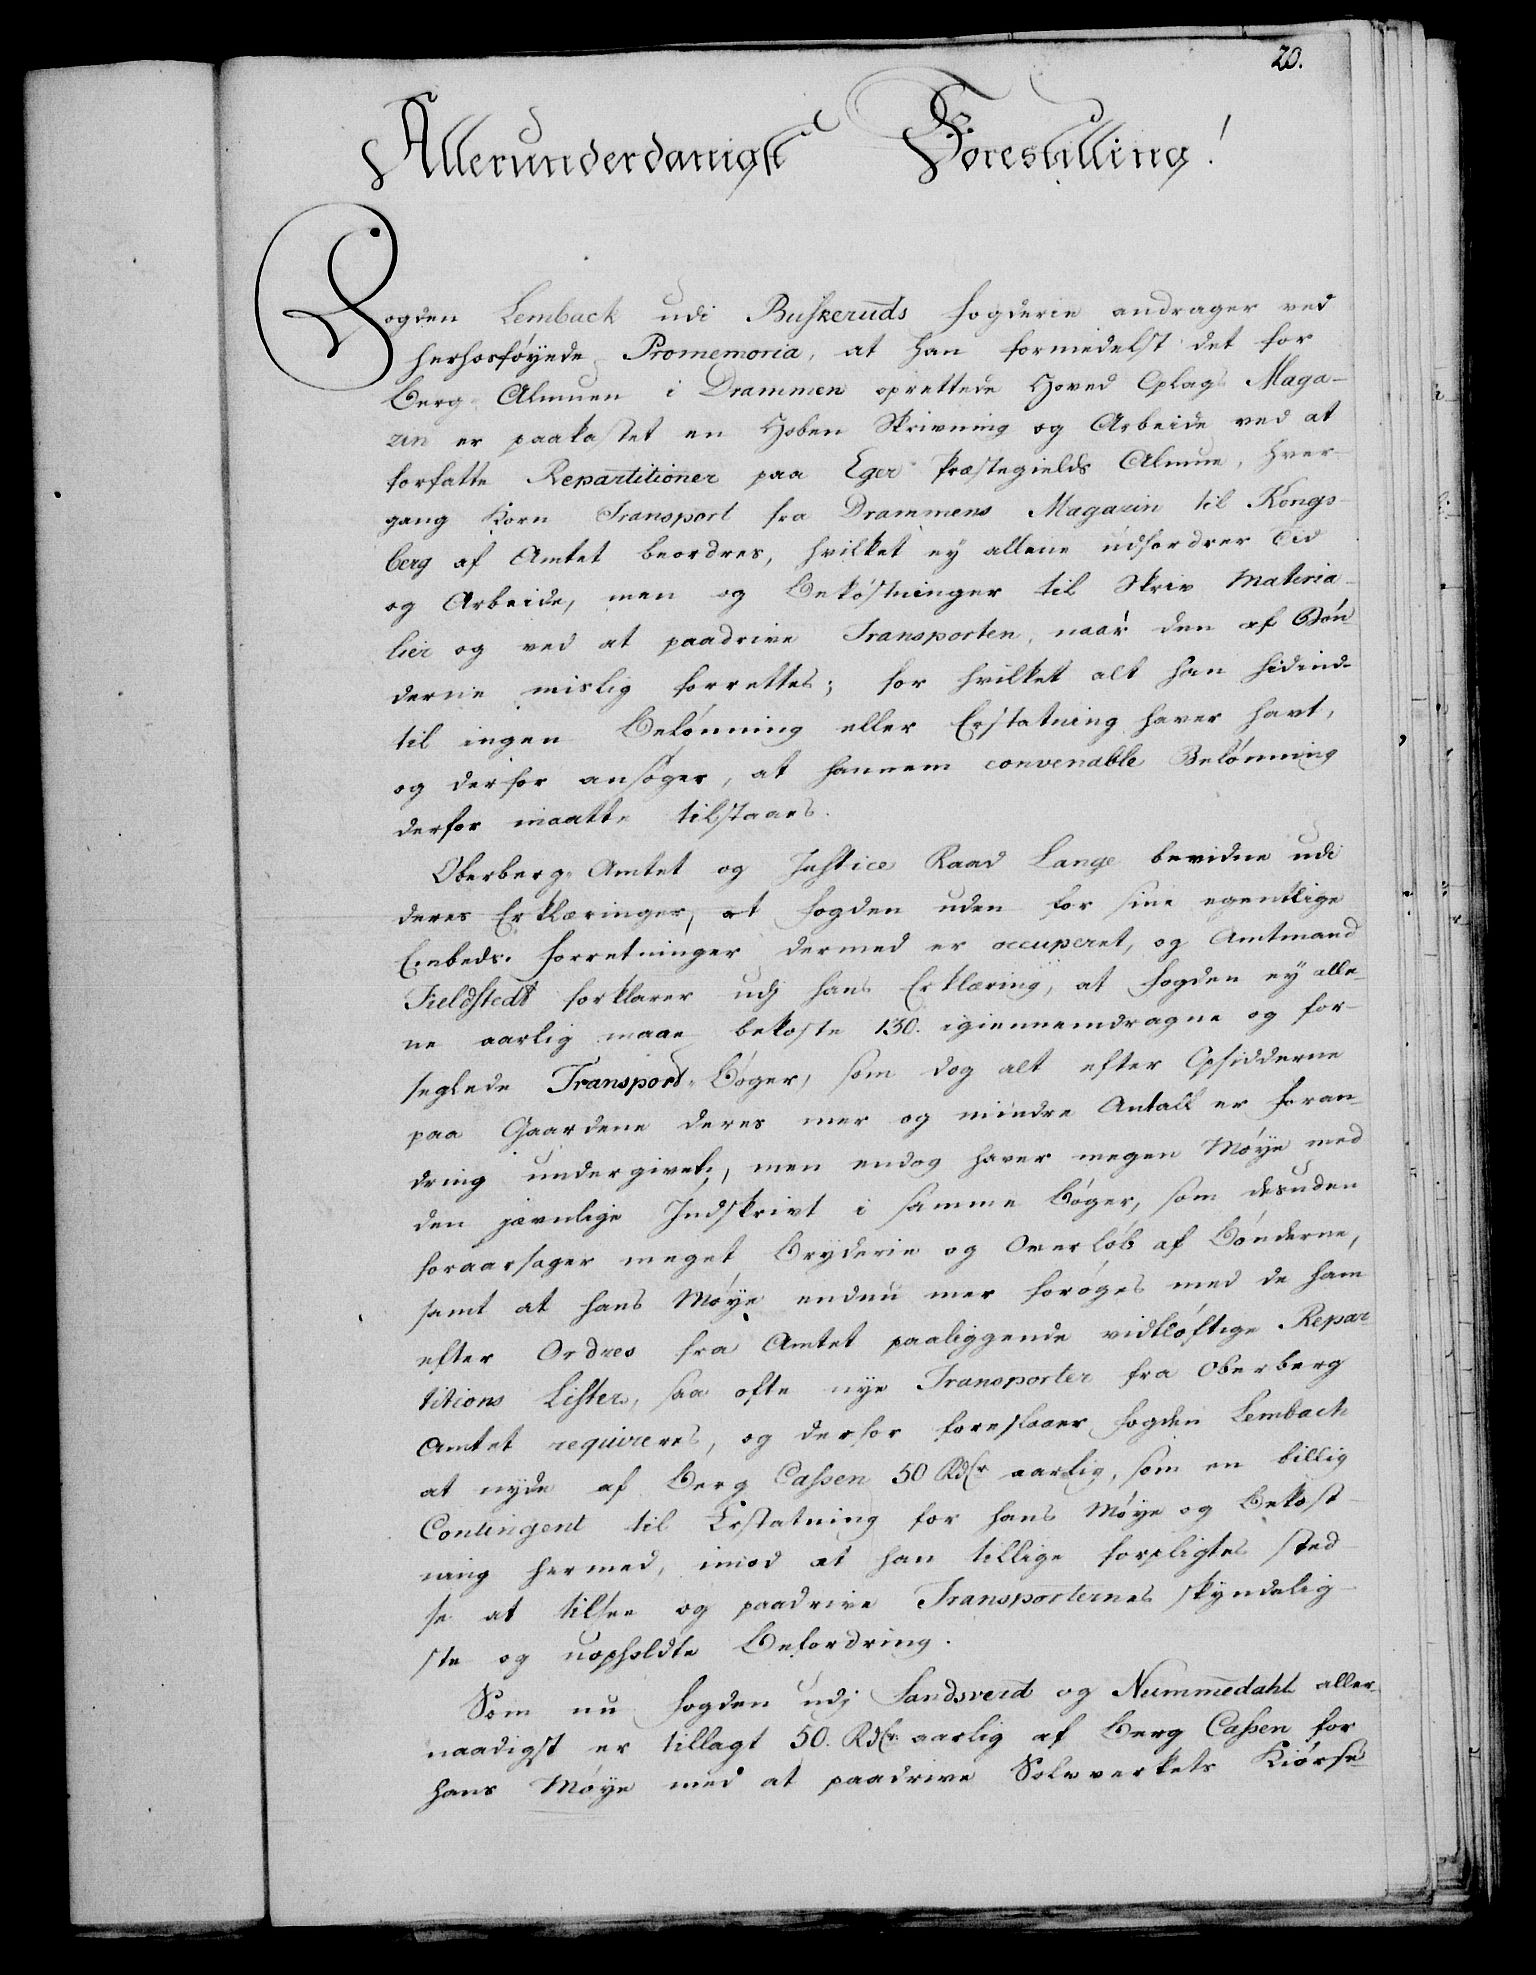 20.
Allerunderdanigst Forestilling!
Fogden Lemback udi Buskeruds Fogderie andrager ved
herhosføyede Promemoria, at han formedelst det for
Berg Almuen i Drammen oprettede Hoved Oplags Maga-
zin er paakastet en Hoben Skrivning og Arbeide ved at
forfatte Repartitioner paa Eger Præstegields Almue, hver-
gang Korn Transport fra Drammens Magazin til Kongs-
berg af Amtet beordres, hvilket ey allene udfordrer Tid
og Arbeide, men og Bekostninger til Skriv Materia-
lier og ved at paadrive Transporten, naar den af Bøn-
derne mislig forrettes; for hvilket alt han hidind-
til ingen Belønning eller Erstatning haver havt,
og derfor ansøger, at hannem convenable Belønning
derfor maatte tilstaaes.
Oberberg-Amtet og Justice Raad Lange bevidne udi
deres Erklæringer, at Fogden uden for sine egentlige
Embeds-Forretninger dermed er occuperet, og Amtmand
Fieldstedt forklarer udj hans Erklæring, at Fogden ey alle-
ne aarlig maae bekoste 130. igiennemdragne og for-
seglede Transport-Bøger, som dog alt efter Opsidderne
paa Gaardene deres mer og mindre Antall er foran-
dring undergivet, men endog haver megen Møye med
den jævnlige Indskrivt i samme Bøger, som desuden
foraarsager meget Bryderie og Overløb af Bønderne,
samt at hans Møye endnu mer forøges med de ham
efter Ordres fra Amtet paaliggende vidtløftige Repar-
titions Lister, saa ofte nye Transporter fra Oberberg
Amtet requireres, og derfor foreslaaer Fogden Lembach
at nyde af Berg Cassen 50 Rdlr aarlig, som en billig
Contingent til Erstatning for hans Møye og Bekost-
ning hermed, imod at han tillige forpligtes sted-
se at tilsee og paadrive Transporternes skyndelig-
ste og uopholdte Befordring.
Som nu Fogden udj Sandsverd og Nummedahl aller-
naadigst er tillagt 50. Rdlr. aarlig af Berg Cassen for
hans Møye med at paadrive Sølvverkets Kiørse-